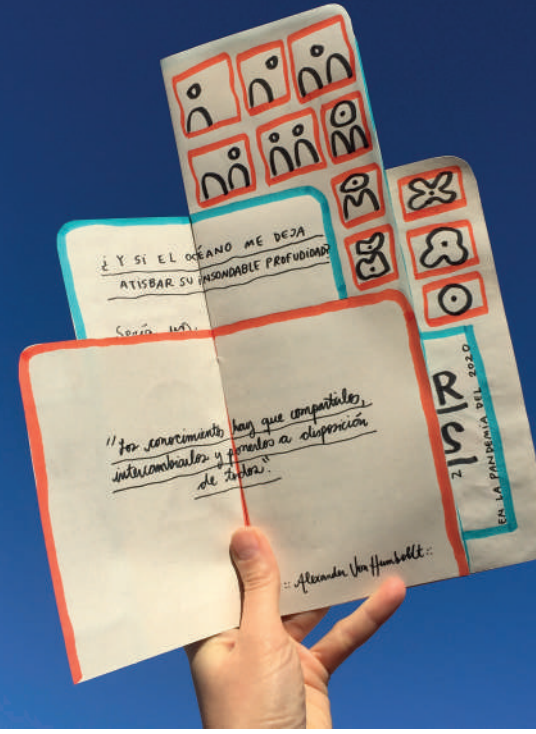 ¿ Y SI EL OCÉANO ME DEJA
ATISBAR SU INSONDABLE PROFUDIDAD?
"Los conocimientos hay que compartirlos,
intercambiarlos y ponerlos a disposición
de todos."
:: Alexander Von Humboldt ::
R
S|
2
EN LA PANDEMIA DEL 2020